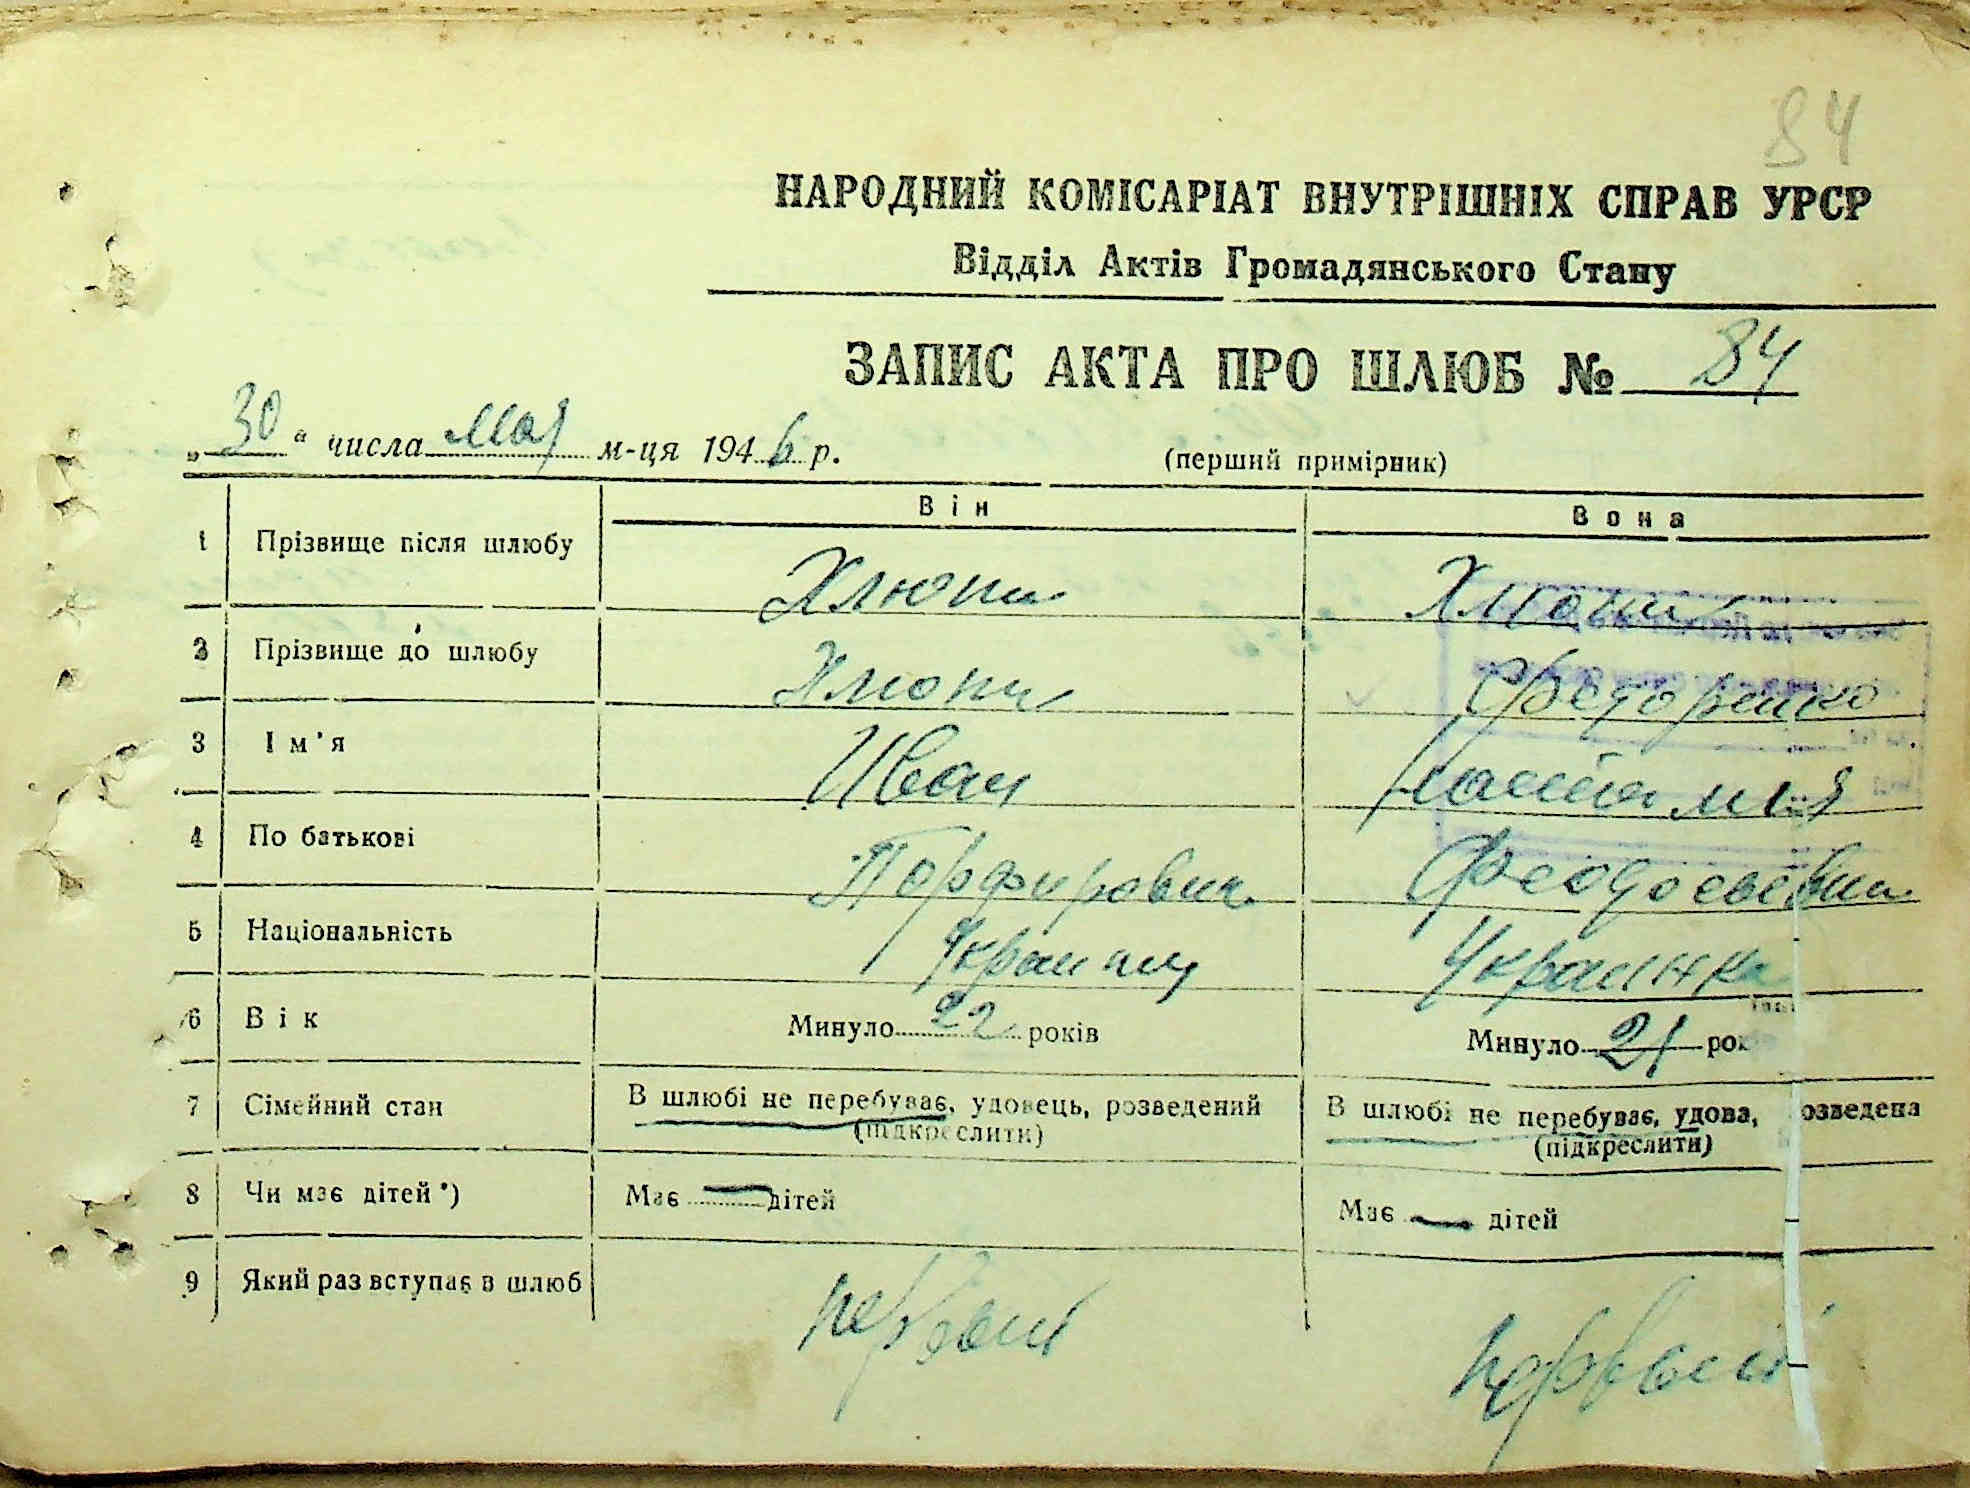 84
НАРОДНИЙ КОМІСАРІАТ ВНУТРІШНІХ СПРАВ УРСР
Відділ Актів Громадянського Стану
ЗАПИС АКТА ПРО ШЛЮБ № 84
„30“ числа мая м-ця 1946 р.
(перший примірник)
Він Вона
1 Прізвище після шлюбу Хлюпин Хлюпин
2 Прізвище до шлюбу Хлюпин Федоренко
3 Ім'я Иван
4 По батькові Порфирович Феодосьевна
5 Національність Украинец Украинка
6 Вік Минуло 22 років Минуло 21 рок
7 Сімейний стан В шлюбі не перебуває, удовець, розведений В шлюбі не перебуває, удова, розведена
(підкреслити) (підкреслити)
8 Чи має дітей*) Має — дітей Має — дітей
9 Який раз вступає в шлюб первый первый